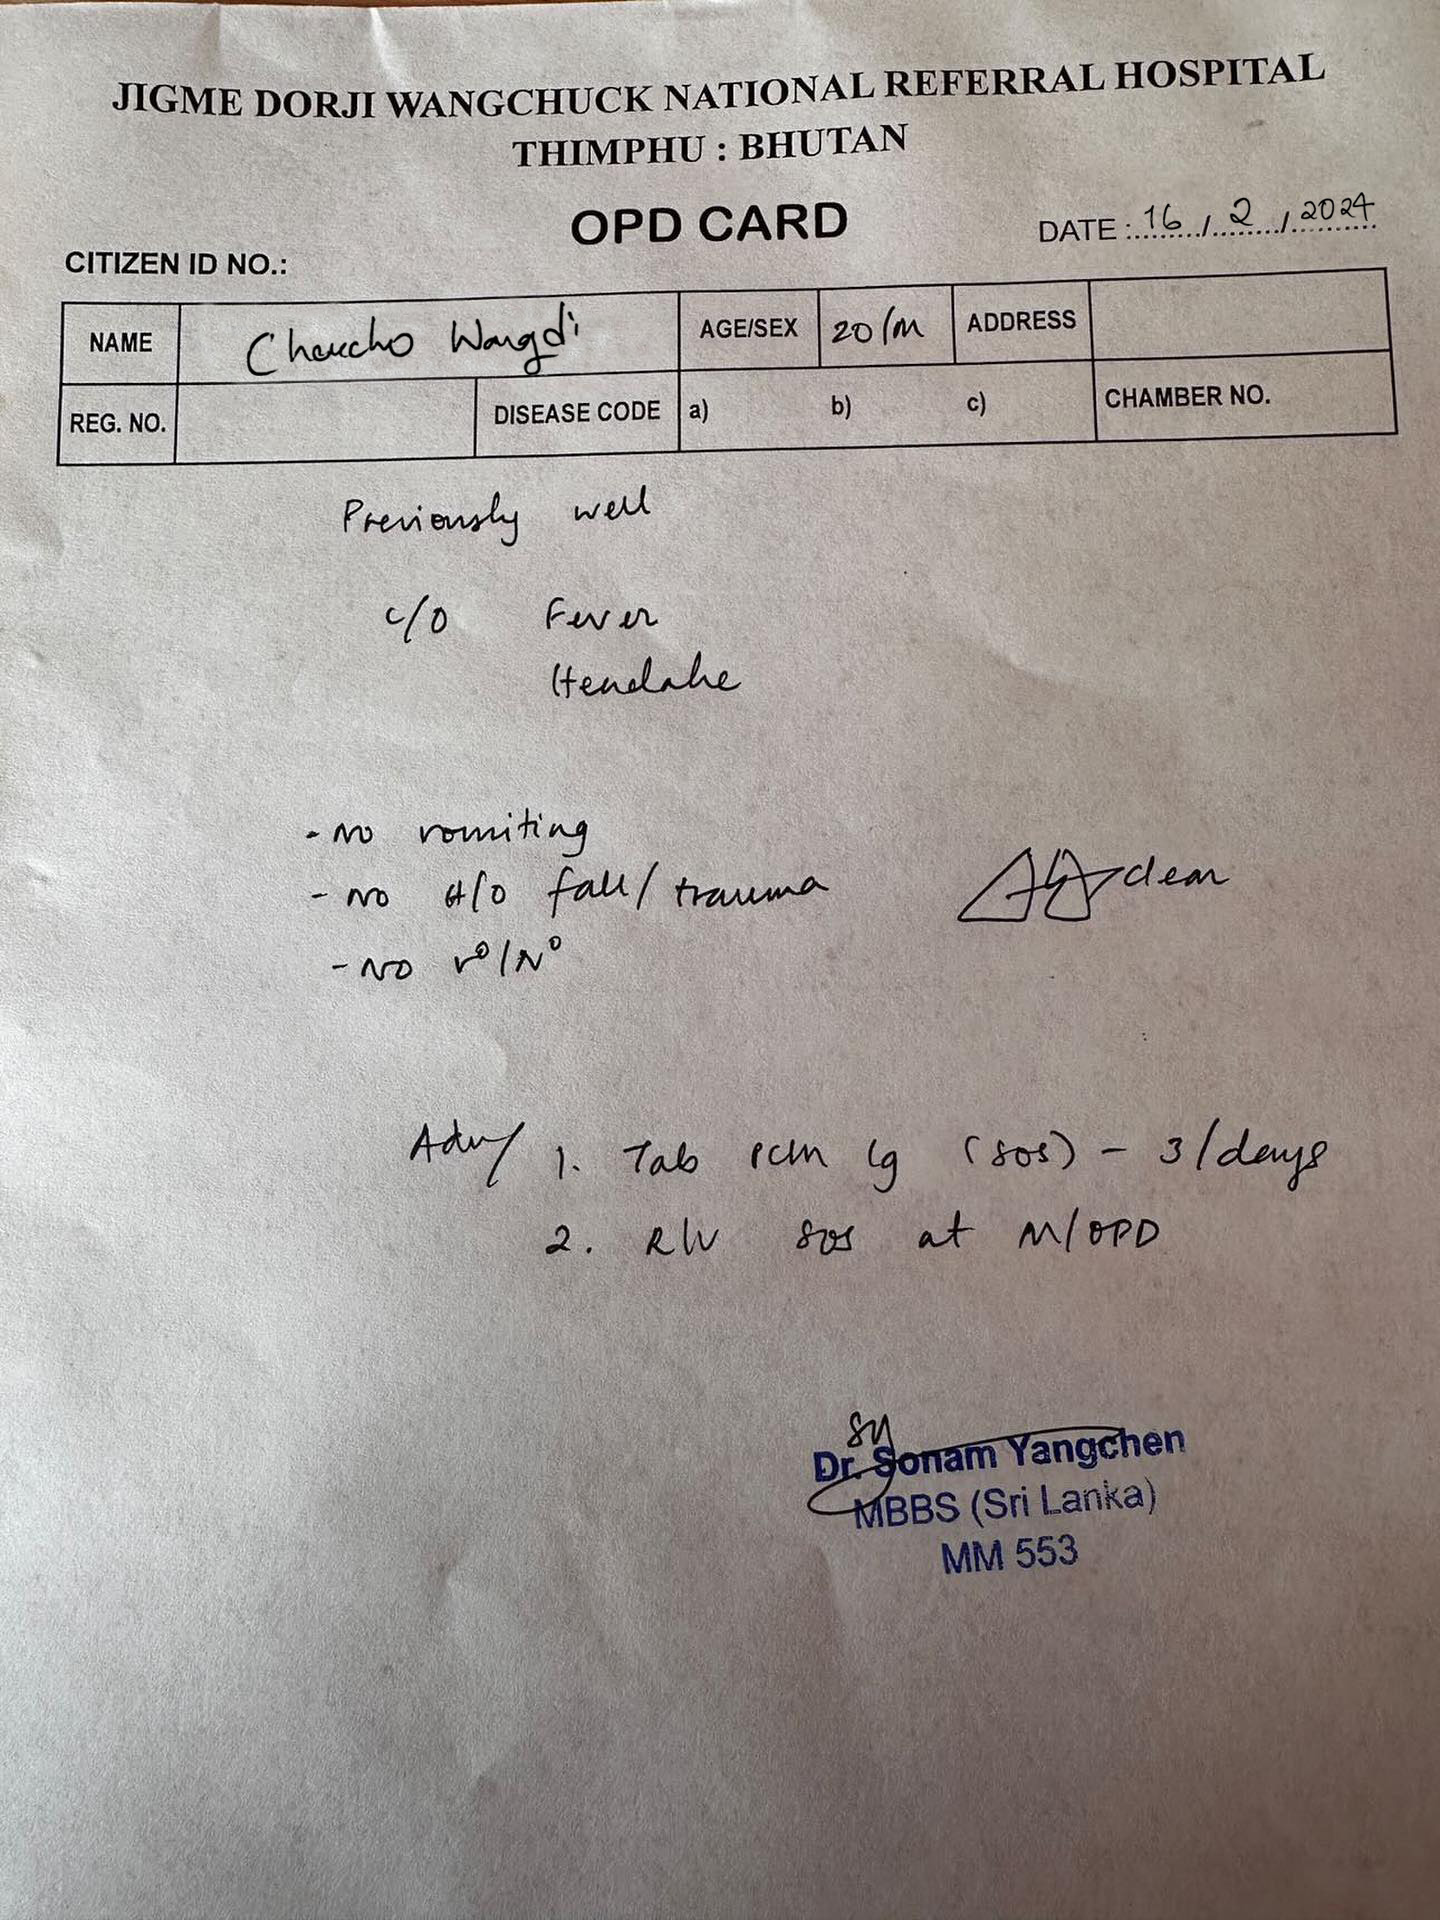 JIGME DORJI WANGCHUCK NATIONAL REFERRAL HOSPITAL
THIMPHU : BHUTAN
OPD CARD
DATE : 16 / 2 / 2024
CITIZEN ID NO.:
NAME Chencho Wangdi AGE/SEX 20/M ADDRESS
REG. NO. DISEASE CODE a) b) c) CHAMBER NO.
Previously well
c/o Fever
Headahe
- no vomiting
- no H/O fall / trauma
clear
- no
Adv/ 1. Tab PCM 1g (SOS) - 3/days
2. R/V SOS at M/OPD
Sy
Dr. Sonam Yangchen
MBBS (Sri Lanka)
MM 553